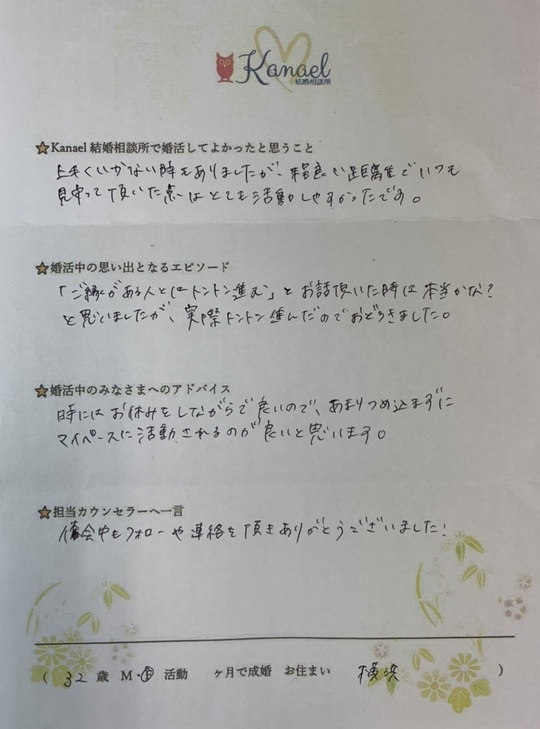 Kanael
結婚相談所
Kanael 結婚相談所で婚活してよかったと思うこと
上手くいかない時もありましたが、程良い距離感でいつも
見守って頂いた点はとても活動しやすかったです。
婚活中の思い出となるエピソード
「ご縁がある人とはトントン進む」とお話頂いた時は本当かな?
と思いましたが、実際トントン進んだのでおどろきました。
婚活中のみなさまへのアドバイス
時にはお休みをしながらで良いので、あまりつめ込まずに
マイペースに活動されるのが良いと思います。
担当カウンセラーへ一言
会中もフォローや連絡を頂きありがとうございました!
( 32 歳 M・F 活動 ヶ月で成婚 お住まい 横浜 )